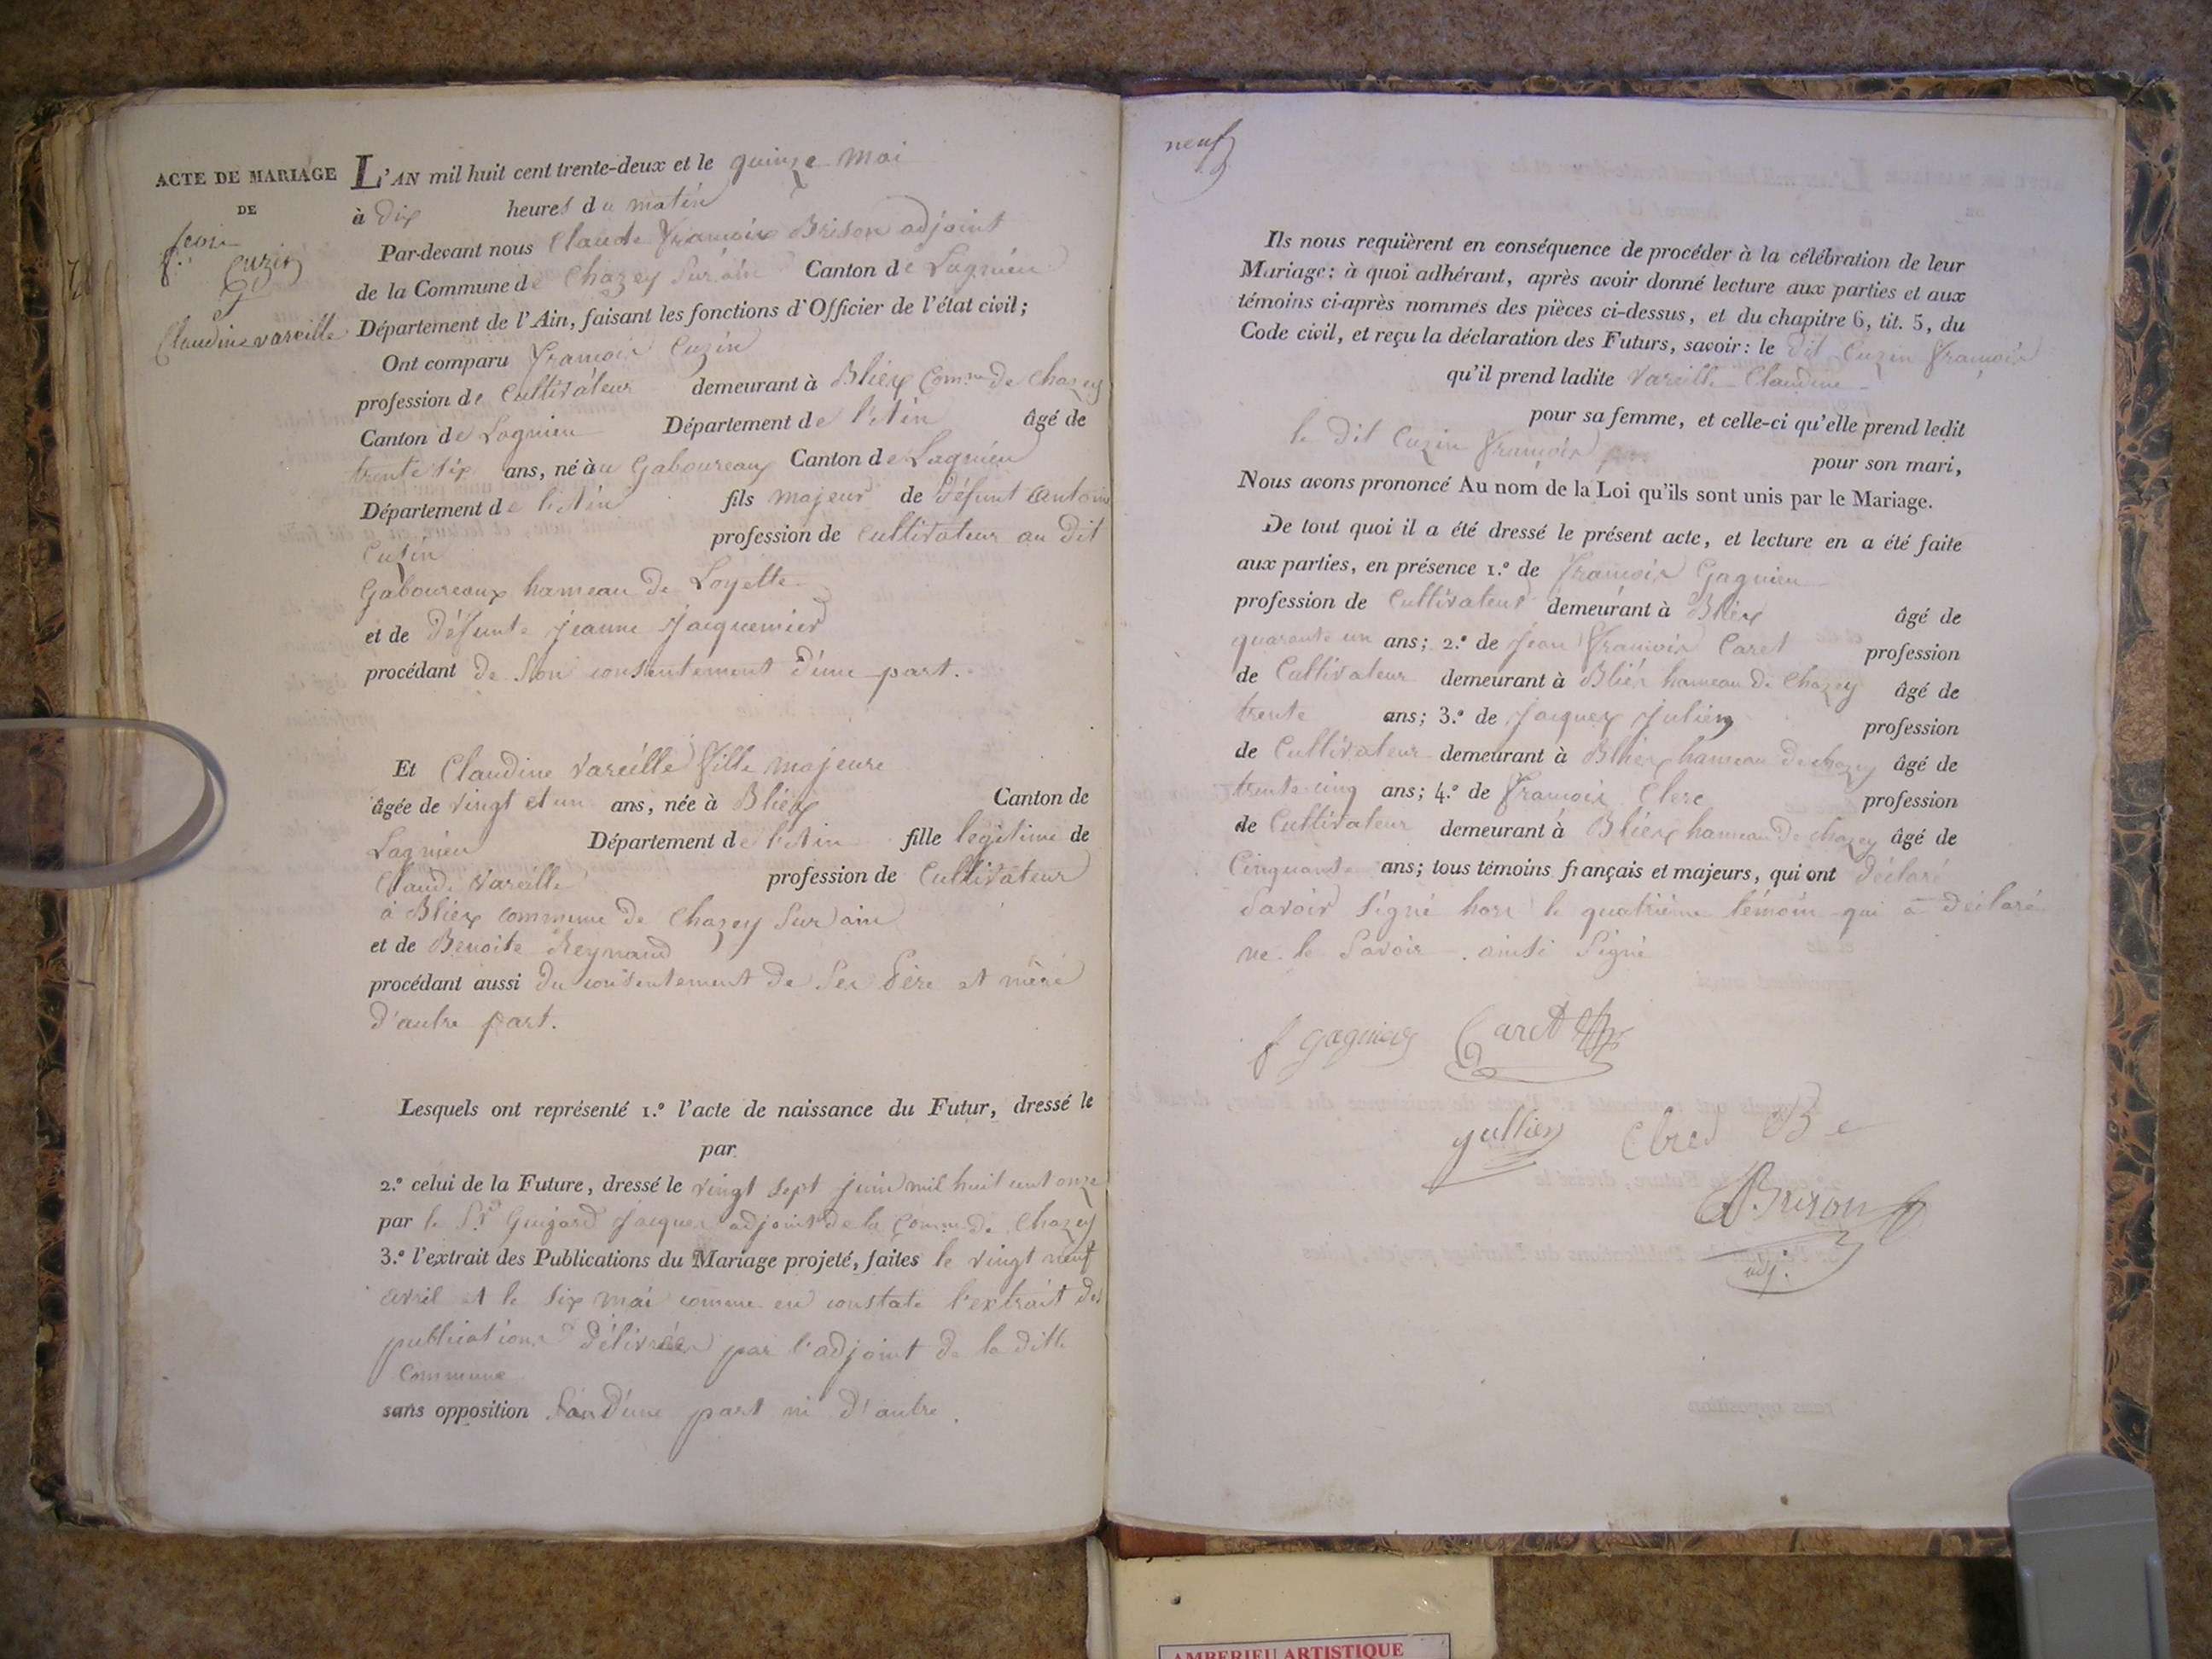 ACTE DE MARIAGE
DE
Cuzin
et
Claudine vareille
L'AN mil huit cent trente-deux et le quinze mai
à dix heures du matin
Par-devant nous Claude françois Brison adjoint
de la Commune de Chazey Sur ain Canton de Lagnieu
Département de l'Ain, faisant les fonctions d'Officier de l'état civil;
Ont comparu françois Cuzin
profession de Cultivateur demeurant à Bliex Comne de Chazey
Canton de Lagnieu Département de l'Ain âgé de
trente six ans, né àu Gaboureaux Canton de Lagnieu
Département de l'Ain fils majeur de défunt Antoine
Cuzin profession de Cultivateur au dit
Gaboureaux hameau de Loyette
et de défunte jeanne jacquemier
procédant de Son consentement d'une part.
Et Claudine vareille fille majeure
âgée de vingt et un ans, née à Bliex Canton de
Lagnieu Département de l'Ain fille legitime de
Claude vareille profession de Cultivateur
à Bliex commune de Chazey Sur ain
et de Benoite Reynaud
procédant aussi du consentement de Ses Père et mère
d'autre part.
Lesquels ont représenté 1.º l'acte de naissance du Futur, dressé le
par
2.º celui de la Future, dressé le vingt Sept juin mil huit cent onze
par le Sr Guigard jacques adjoint de la Comne de Chazey
3.º l'extrait des Publications du Mariage projeté, faites le vingt neuf
avril et le Six mai comme en constate l'extrait des
publications délivrées par l'adjoint de la ditte
Commune
sans opposition d'une part ni d'autre.
neuf
Ils nous requièrent en conséquence de procéder à la célébration de leur
Mariage: à quoi adhérant, après avoir donné lecture aux parties et aux
témoins ci-après nommés des pièces ci-dessus, et du chapitre 6, tit. 5, du
Code civil, et reçu la déclaration des Futurs, savoir: le dit Cuzin françois
qu'il prend ladite Vareille Claudine
pour sa femme, et celle-ci qu'elle prend ledit
le dit Cuzin françois pour son mari,
Nous avons prononcé Au nom de la Loi qu'ils sont unis par le Mariage.
De tout quoi il a été dressé le présent acte, et lecture en a été faite
aux parties, en présence 1.º de françois Gagnieu
profession de Cultivateur demeurant à Bliex âgé de
quarante un ans; 2.º de jean françois Caret profession
de Cultivateur demeurant à Bliex hameau de Chazey âgé de
trente ans; 3.º de jacques julien profession
de Cultivateur demeurant à Bliex hameau de chazey âgé de
trente cinq ans; 4.º de françois Clerc profession
de Cultivateur demeurant à Bliex hameau de chazey âgé de
Cinquante ans; tous témoins français et majeurs, qui ont déclaré
Savoir Signé hors le quatrième témoin qui a déclaré
ne le Savoir. ainsi Signé
f gagnieu Caret
jullien
Brison
adj.
AMBERIEU ARTISTIQUE